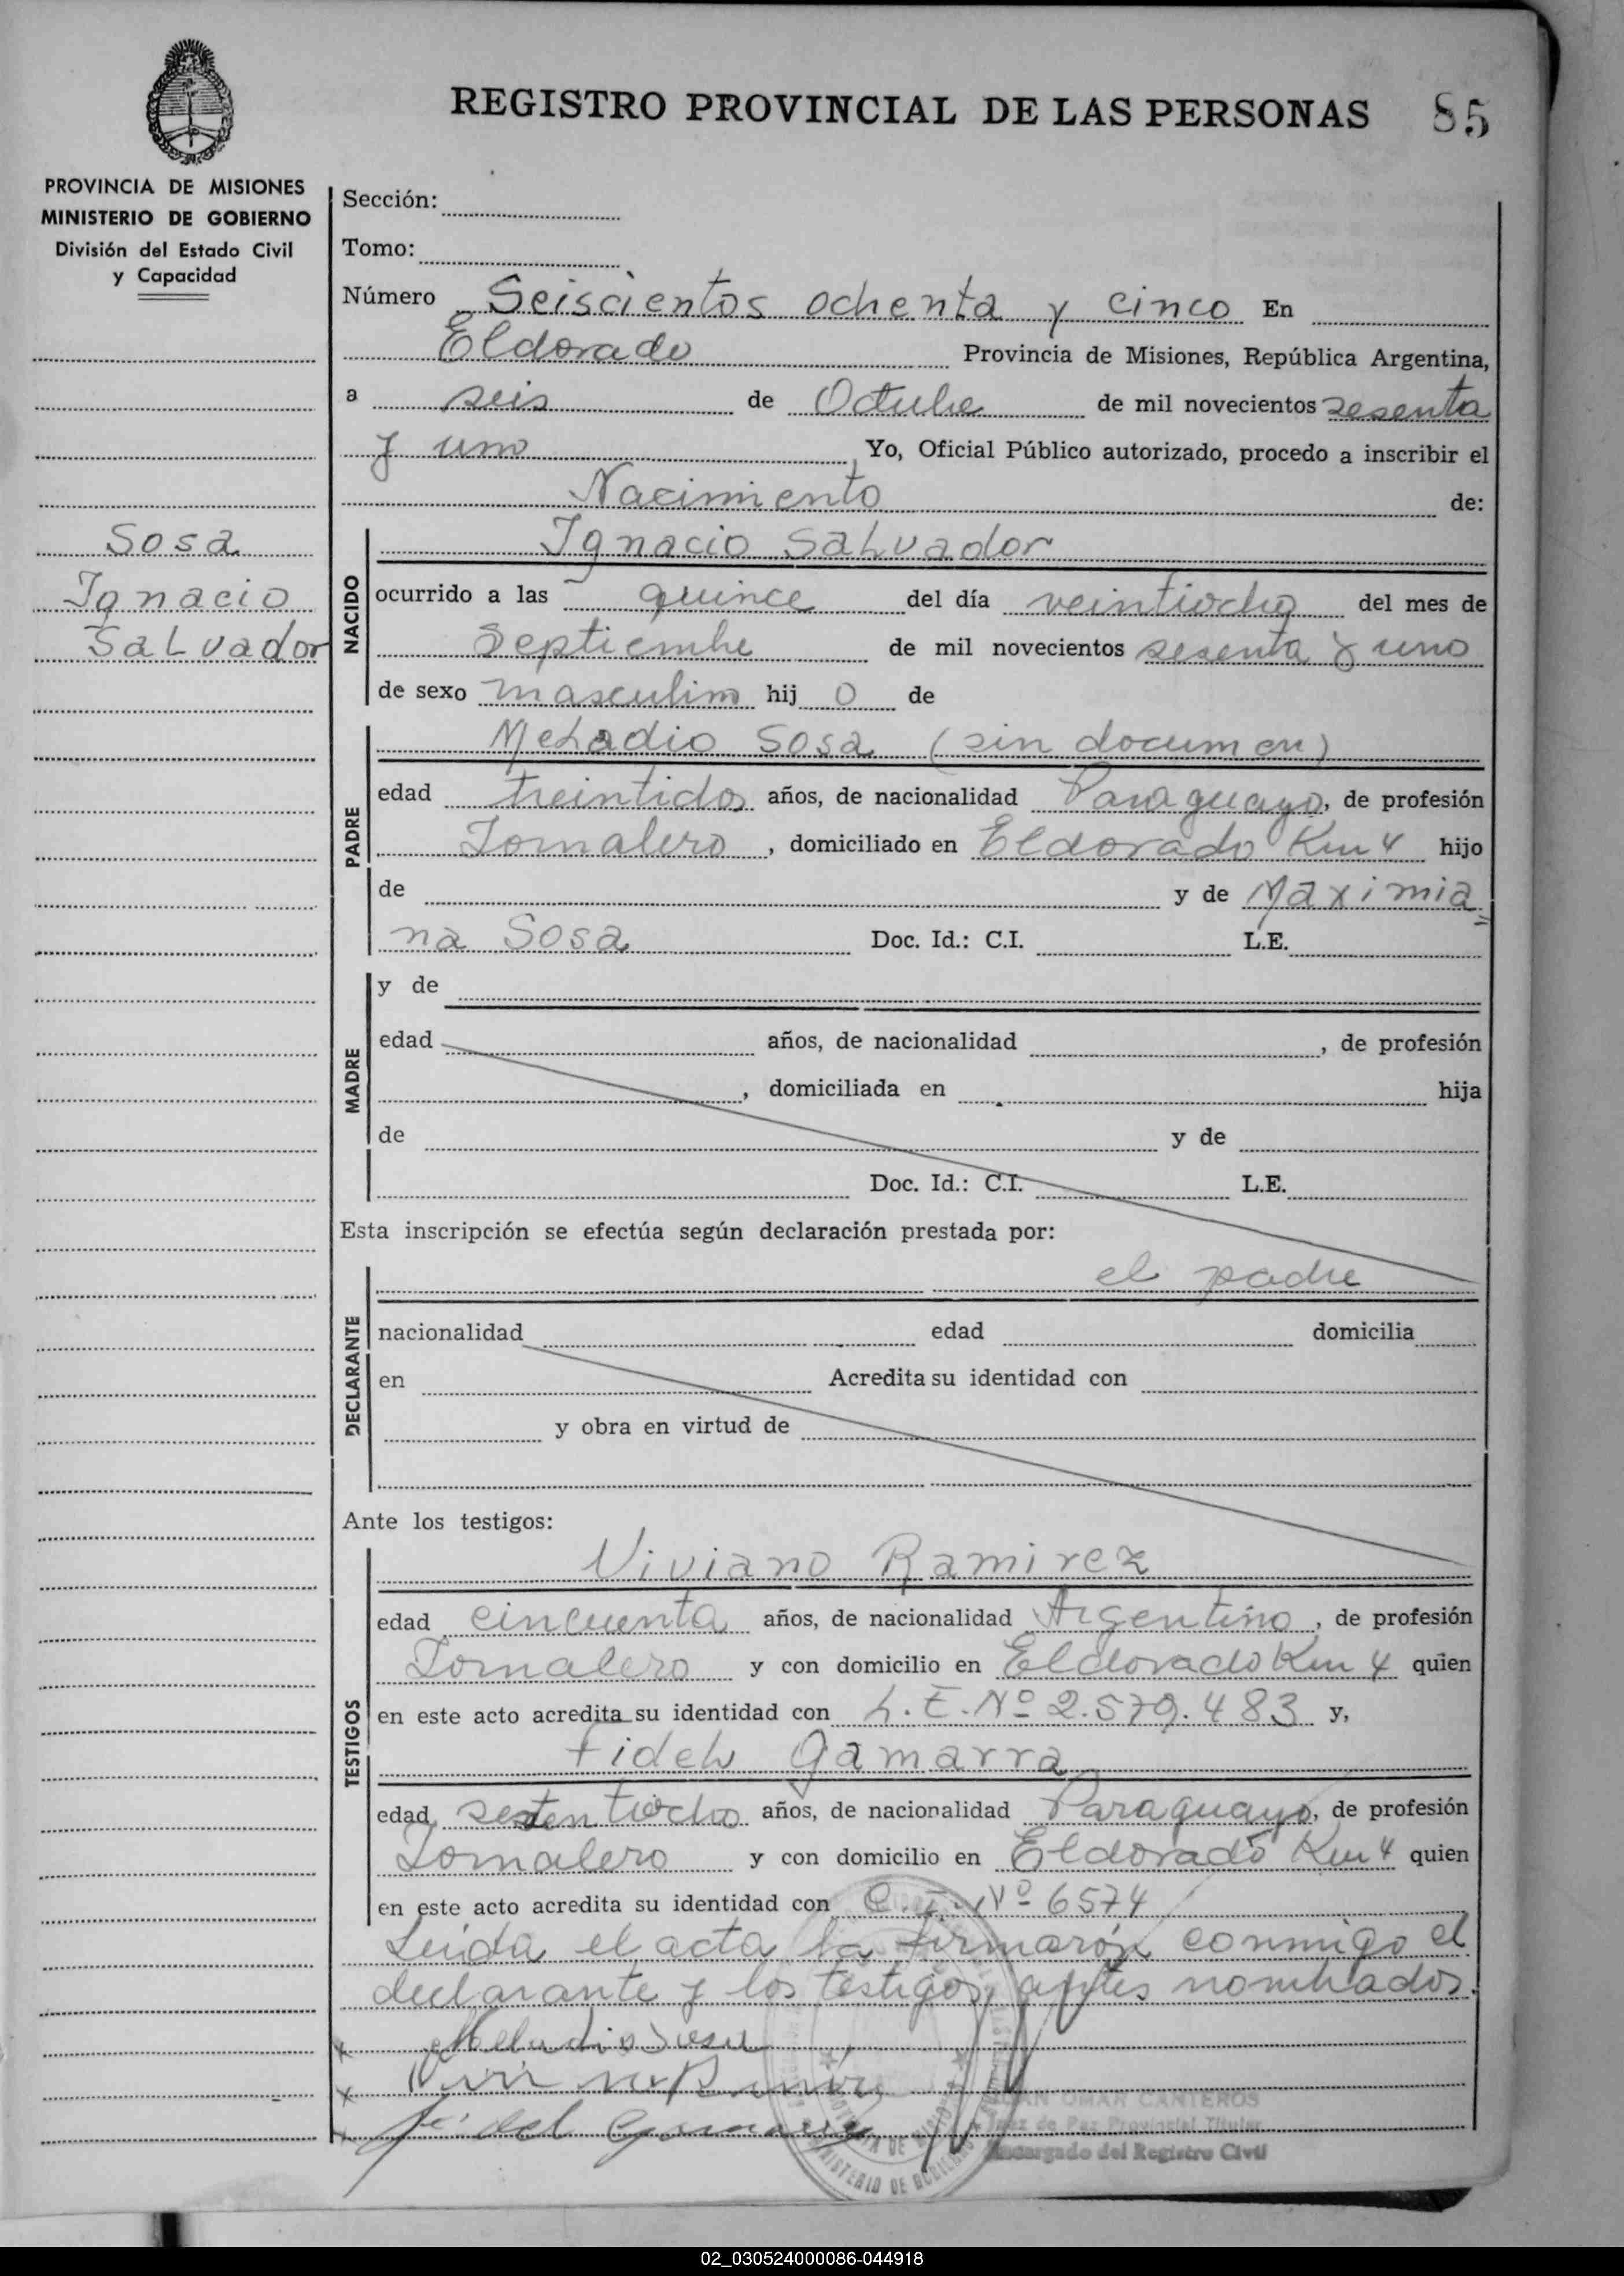 REGISTRO PROVINCIAL DE LAS PERSONAS 85
PROVINCIA DE MISIONES
MINISTERIO DE GOBIERNO
División del Estado Civil
y Capacidad
Sosa
Ignacio
Salvador
Sección:
Tomo:
Número Seiscientos ochenta y cinco En
Eldorado Provincia de Misiones, República Argentina,
a seis de Octubre de mil novecientos sesenta
y uno Yo, Oficial Público autorizado, procedo a inscribir el
Nacimiento de:
NACIDO
Ignacio Salvador
ocurrido a las quince del día veintiocho del mes de
Septiembre de mil novecientos sesenta y uno
de sexo masculino hij o de
PADRE
Meladio Sosa (sin documen)
edad treintidos años, de nacionalidad Paraguayo, de profesión
Jornalero, domiciliado en Eldorado Km 4 hijo
de y de Maximia=
na Sosa Doc. Id.: C.I. L.E.
MADRE
y de
edad años, de nacionalidad , de profesión
, domiciliada en hija
de y de
Doc. Id.: C.I. L.E.
Esta inscripción se efectúa según declaración prestada por:
DECLARANTE
el padre
nacionalidad edad domicilia
en Acredita su identidad con
y obra en virtud de
Ante los testigos:
TESTIGOS
Viviano Ramirez
edad cincuenta años, de nacionalidad Argentino, de profesión
Jornalero y con domicilio en Eldorado Km 4 quien
en este acto acredita su identidad con L.E. Nº 2.579.483 y,
Fidel Gamarra
edad años, de nacionalidad Paraguayo, de profesión
Jornalero y con domicilio en Eldorado Km 4 quien
en este acto acredita su identidad con C.I. Nº 6574
Leida el acta la firmarón conmigo el
declarante y los testigos antes nombrados.
x Meladio Sosa
x
x Fidel Gamarra
OMAR CANTEROS
Juez de Paz Provincial Titular
Encargado del Registro Civil
MINISTERIO DE GOBIERNO
02_030524000086-044918